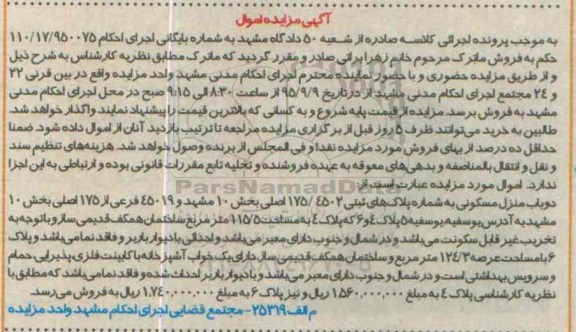 آگهی مزایده اموال
به موجب پرونده اجرائی کلاسه صادره از شعبه ۵۰ دادگاه مشهد به شماره بایگانی اجرای احکام ۱۱۰/۱۷/۹۵۰۰۷۵
حکم به فروش ماترک مرحوم خانم زهرا براتی صادر و مقرر گردید که ماترک مطابق نظریه کارشناس به شرح ذیل
و از طریق مزایده حضوری و با حضور نماینده محترم اجرای احکام مدنی مشهد واحد مزایده واقع در بین قرنی ۲۲
و ۲۴ مجتمع اجرای احکام مدنی مشهد از درتاریخ ۹۵/۹/۹ از ساعت ۸:۳۰ الی ۹:۱۵ صبح در محل اجرای احکام مدنی
مشهد به فروش برسد. مزایده از قیمت پایه شروع و به کسانی که بالاترین قیمت را پیشنهاد نمایند واگذار خواهد شد.
طالبین به خرید می‌توانند ظرف ۵ روز قبل از برگزاری مزایده مراجعه تا ترتیب بازدید آنان از اموال داده شود. ضمنا
حداقل ده درصد از بهای فروش مورد مزایده نقدا و فی المجلس از برنده وصول خواهد شد. هزینه‌های تنظیم سند
و نقل و انتقال بالمناصفه و بدهی‌های معوقه به عهده فروشنده و تخلیه تابع مقررات قانونی بوده و ارتباطی به این اجرا
ندارد. اموال مورد مزایده عبارت است از:
دوباب منزل مسکونی به شماره پلاک‌های ثبتی ۴۵۰۲ /۱۷۵ اصلی بخش ۱۰ مشهد و ۴۵۰۱۹ فرعی از ۱۷۵ اصلی بخش ۱۰
مشهد به آدرس یوسفیه یوسفیه ۵ پلاک ۴ و ۶ که پلاک ۴ به مساحت ۱۱۵/۵ متر مربع ساختمان همکف قدیمی ساز و باتوجه به
تخریب غیر قابل سکونت می‌باشد و در شمال و جنوب دارای معبر می‌باشد و احداثی با دیوار باربر و فاقد نما می‌باشد و پلاک
۶ با مساحت عرصه ۱۲۴/۳ متر مربع و ساختمان همکف قدیمی ساز، دارای یک خواب آشپزخانه با کابینت فلزی پذیرایی حمام
و سرویس بهداشتی است و در شمال و جنوب دارای معبر می‌باشد و با دیوار باربر احداث شده و فاقد نما می‌باشد که مطابق با
نظریه کارشناسی پلاک ۴ به مبلغ ۱.۵۶۰.۰۰۰.۰۰۰ ریال و نیز پلاک ۶ به مبلغ ۱.۷۴۰.۰۰۰.۰۰۰ ریال به فروش می‌رسد.
م الف ۲۵۳۱۹- مجتمع قضایی اجرای احکام مشهد واحد مزایده
ParsNamadData